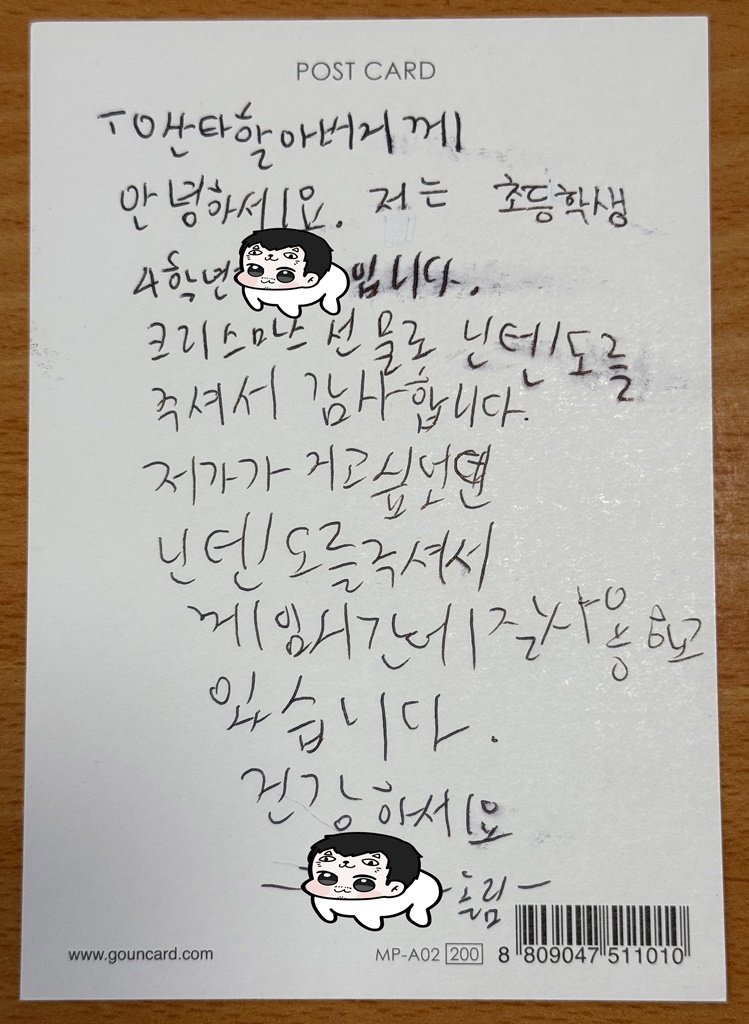 POST CARD
TO산타할아버지께
안녕하세요. 저는 초등학생
4학년 입니다.
크리스마스 선물로 닌텐도를
주셔서 감사합니다.
저가가
닌텐도를주셔서
께임시간에 잘사용하고
있습니다.
건강하세요
- 올림 -
www.gouncard.com
MP-A02 200 8 809047 511010